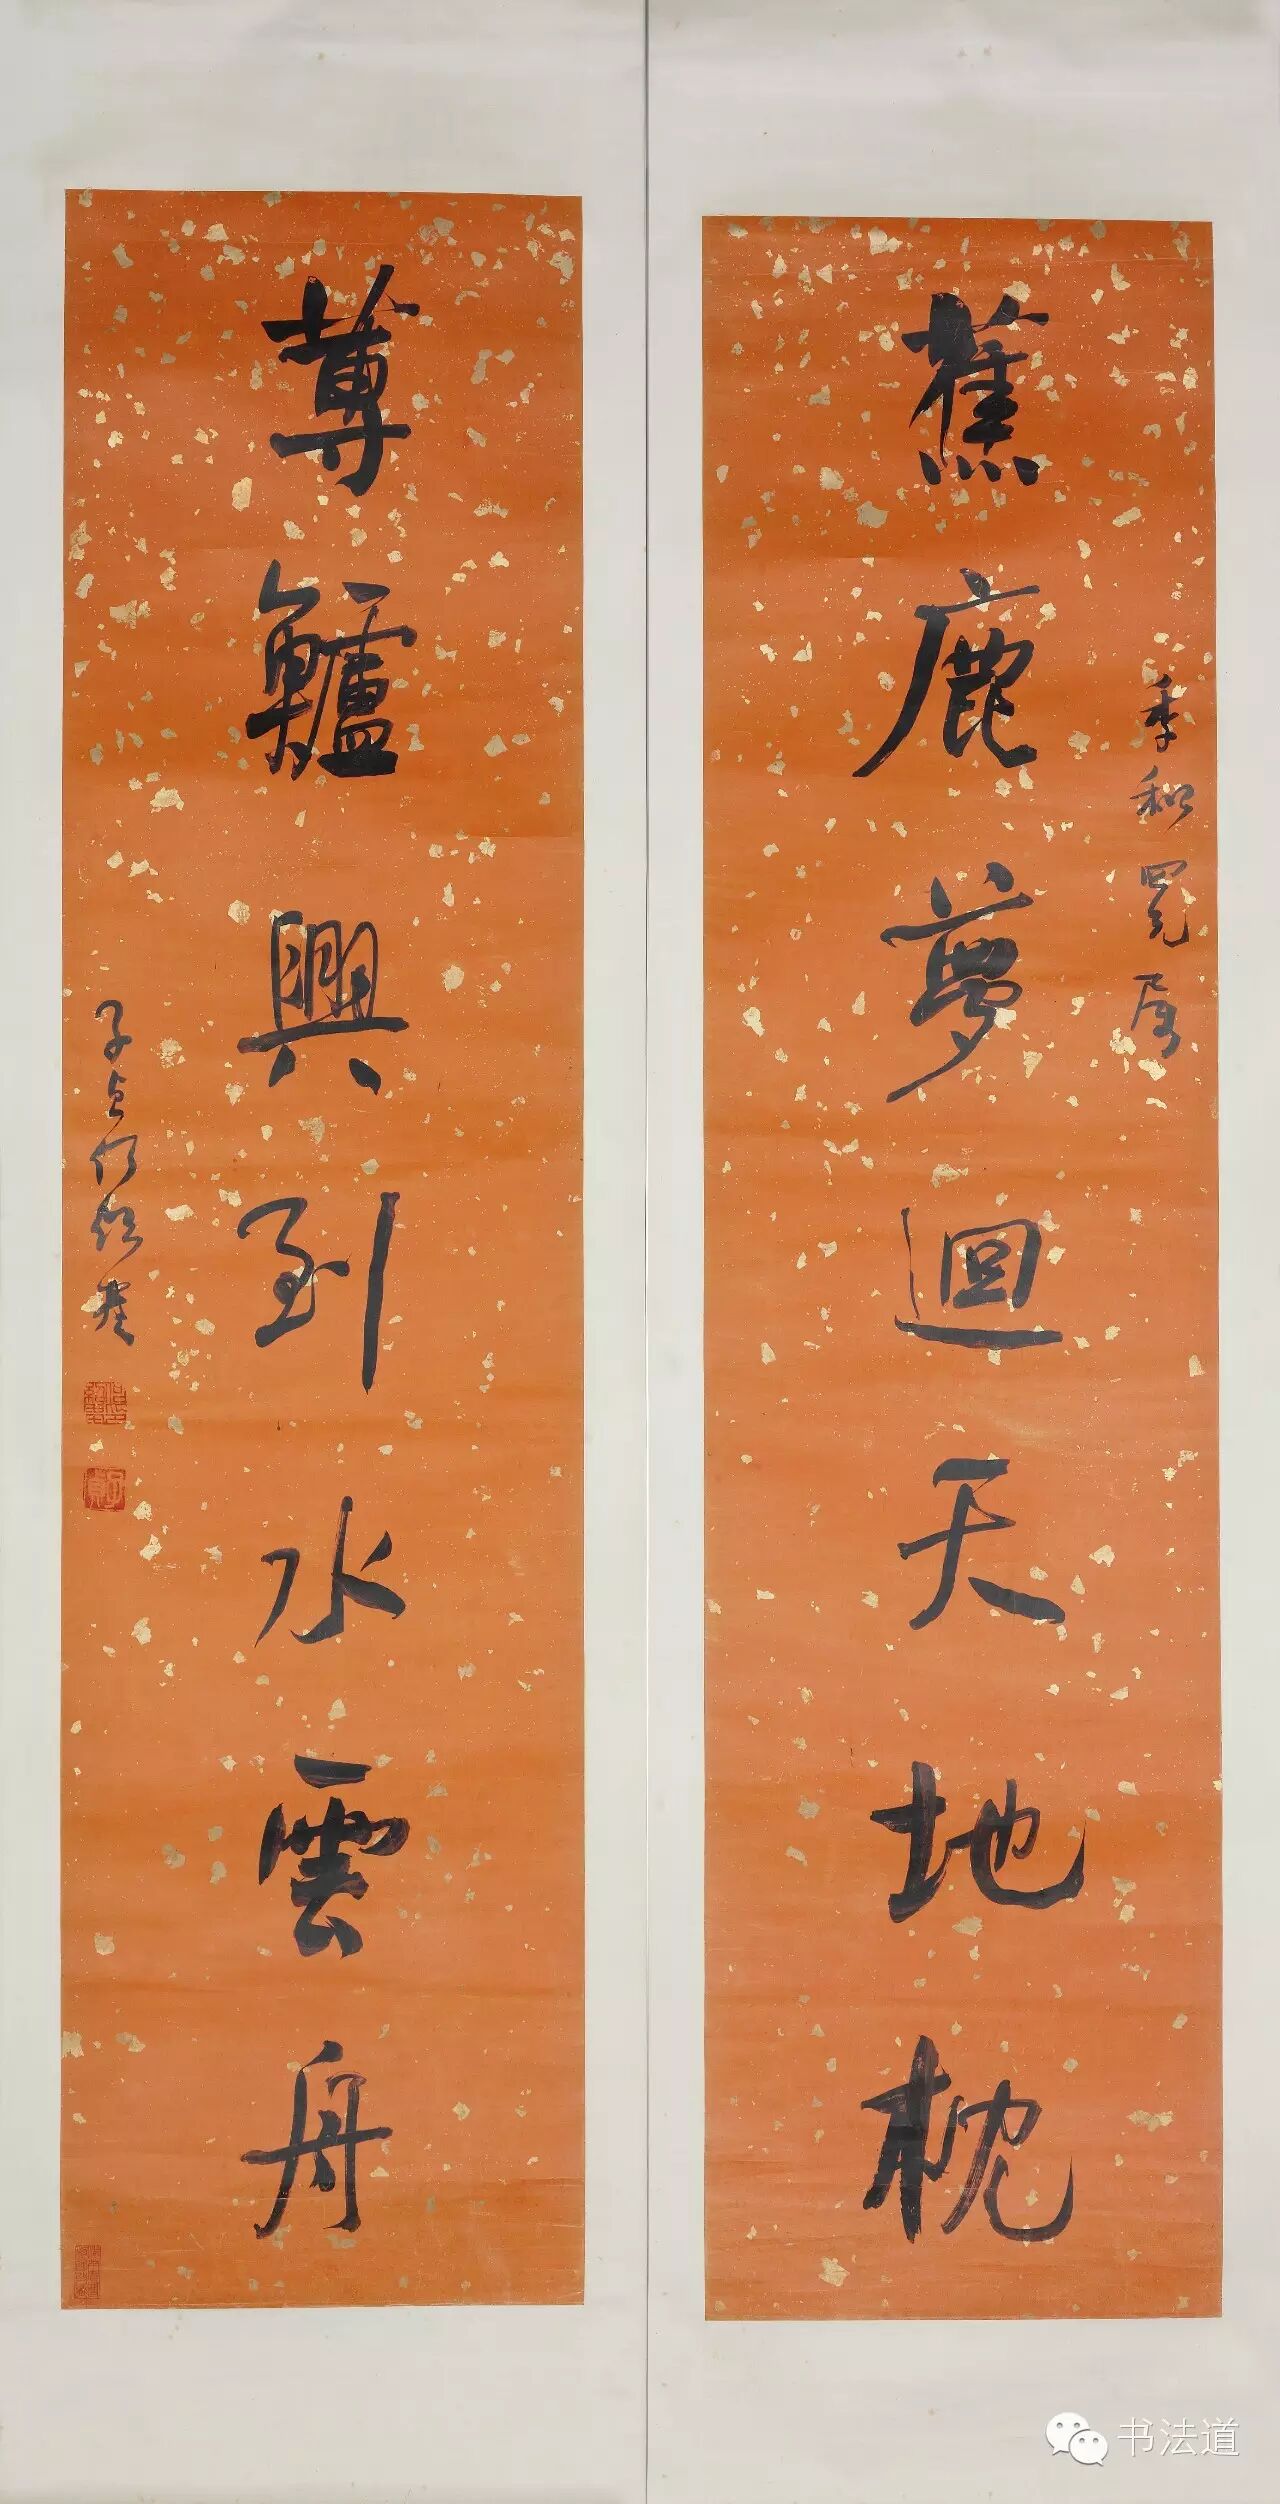 季和四兄属
蕉鹿夢迴天地枕
蓴鱸興到水雲舟
子貞何紹基
子貞
书法道